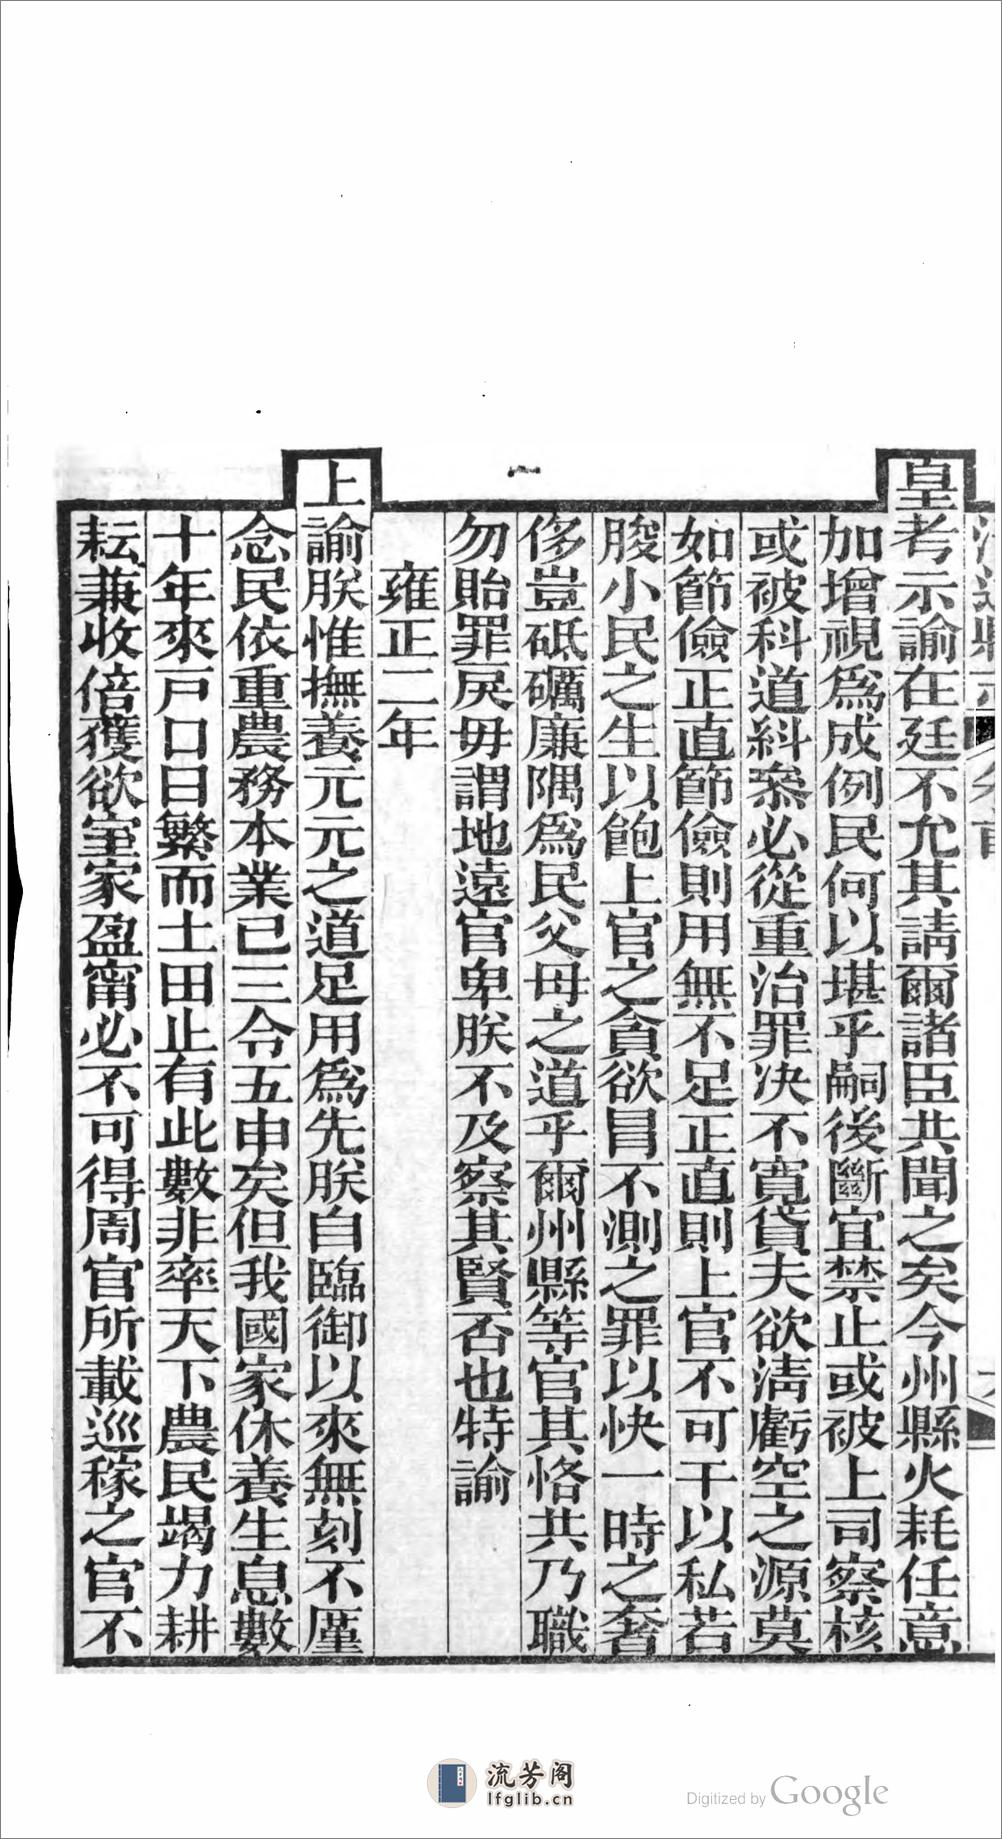 皇考示諭在廷不允其請爾諸臣共聞之矣今州縣火耗任意
加增視爲成例民何以堪乎嗣後斷宜禁止或被上司察核
或被科道糾叅必從重治罪决不寛貸夫欲淸虧空之源莫
如節儉正直節儉則用無不足正直則上官不可干以私若
朘小民之生以飽上官之貪欲冒不測之罪以快一時之奢
侈豈砥礪廉隅爲民父母之道乎爾州縣等官其恪共乃職
勿貽罪戾毋謂地遠官卑朕不及察其賢否也特諭
雍正二年
上諭朕惟撫養元元之道足用爲先朕自臨御以來無刻不厪
念民依重農務本業已三令五申矣但我國家休養生息數
十年來戸口日繁而土田止有此數非率天下農民竭力耕
耘兼收倍獲欲室家盈甯必不可得周官所載巡稼之官不
流芳阁
lfglib.cn
Digitized by Google